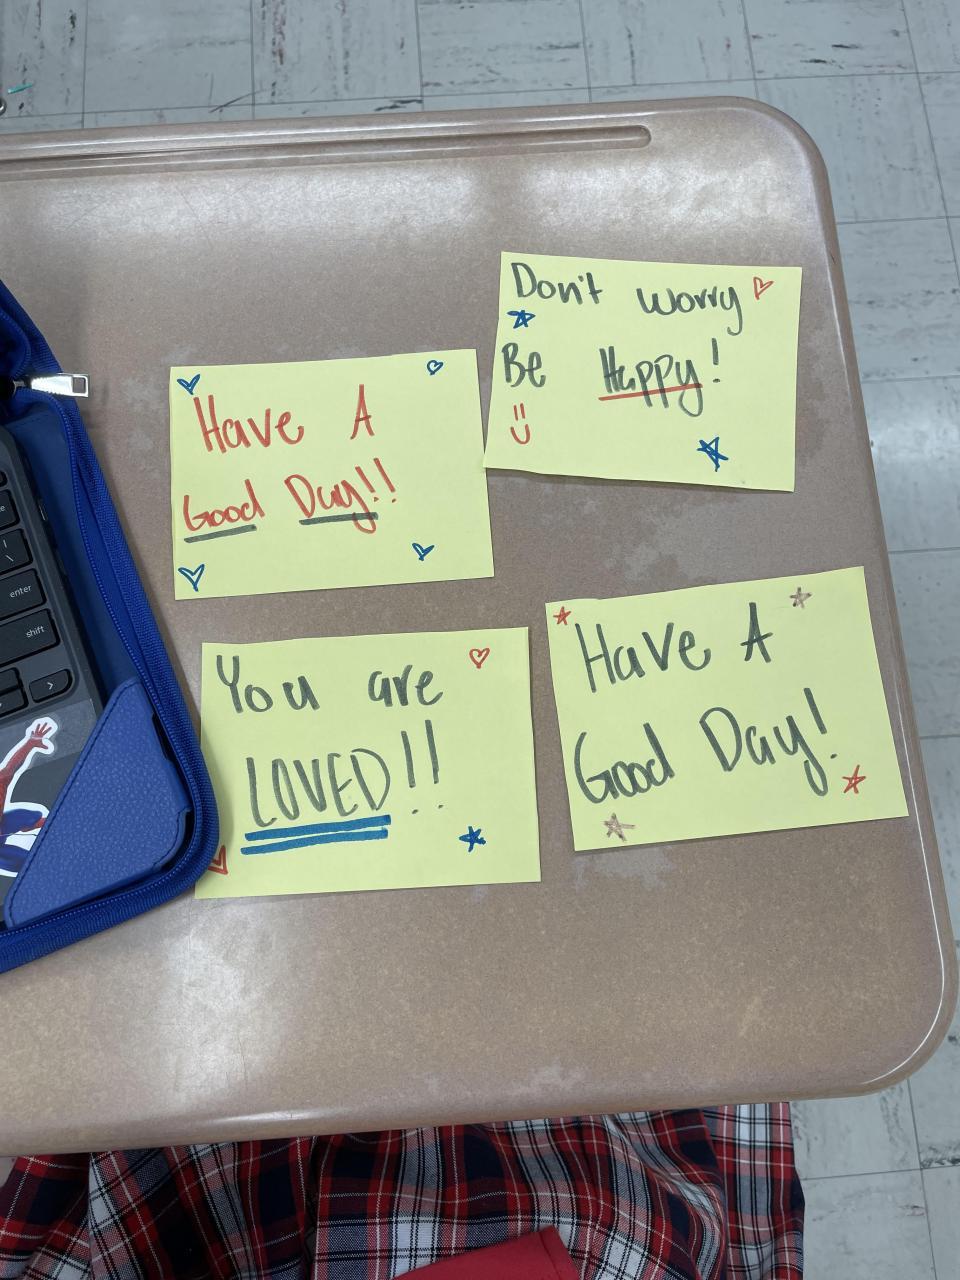 Don't worry
Be Happy!
Have A
Good Day!!
You are
LOVED!!
Have A
Good Day!
enter
shift